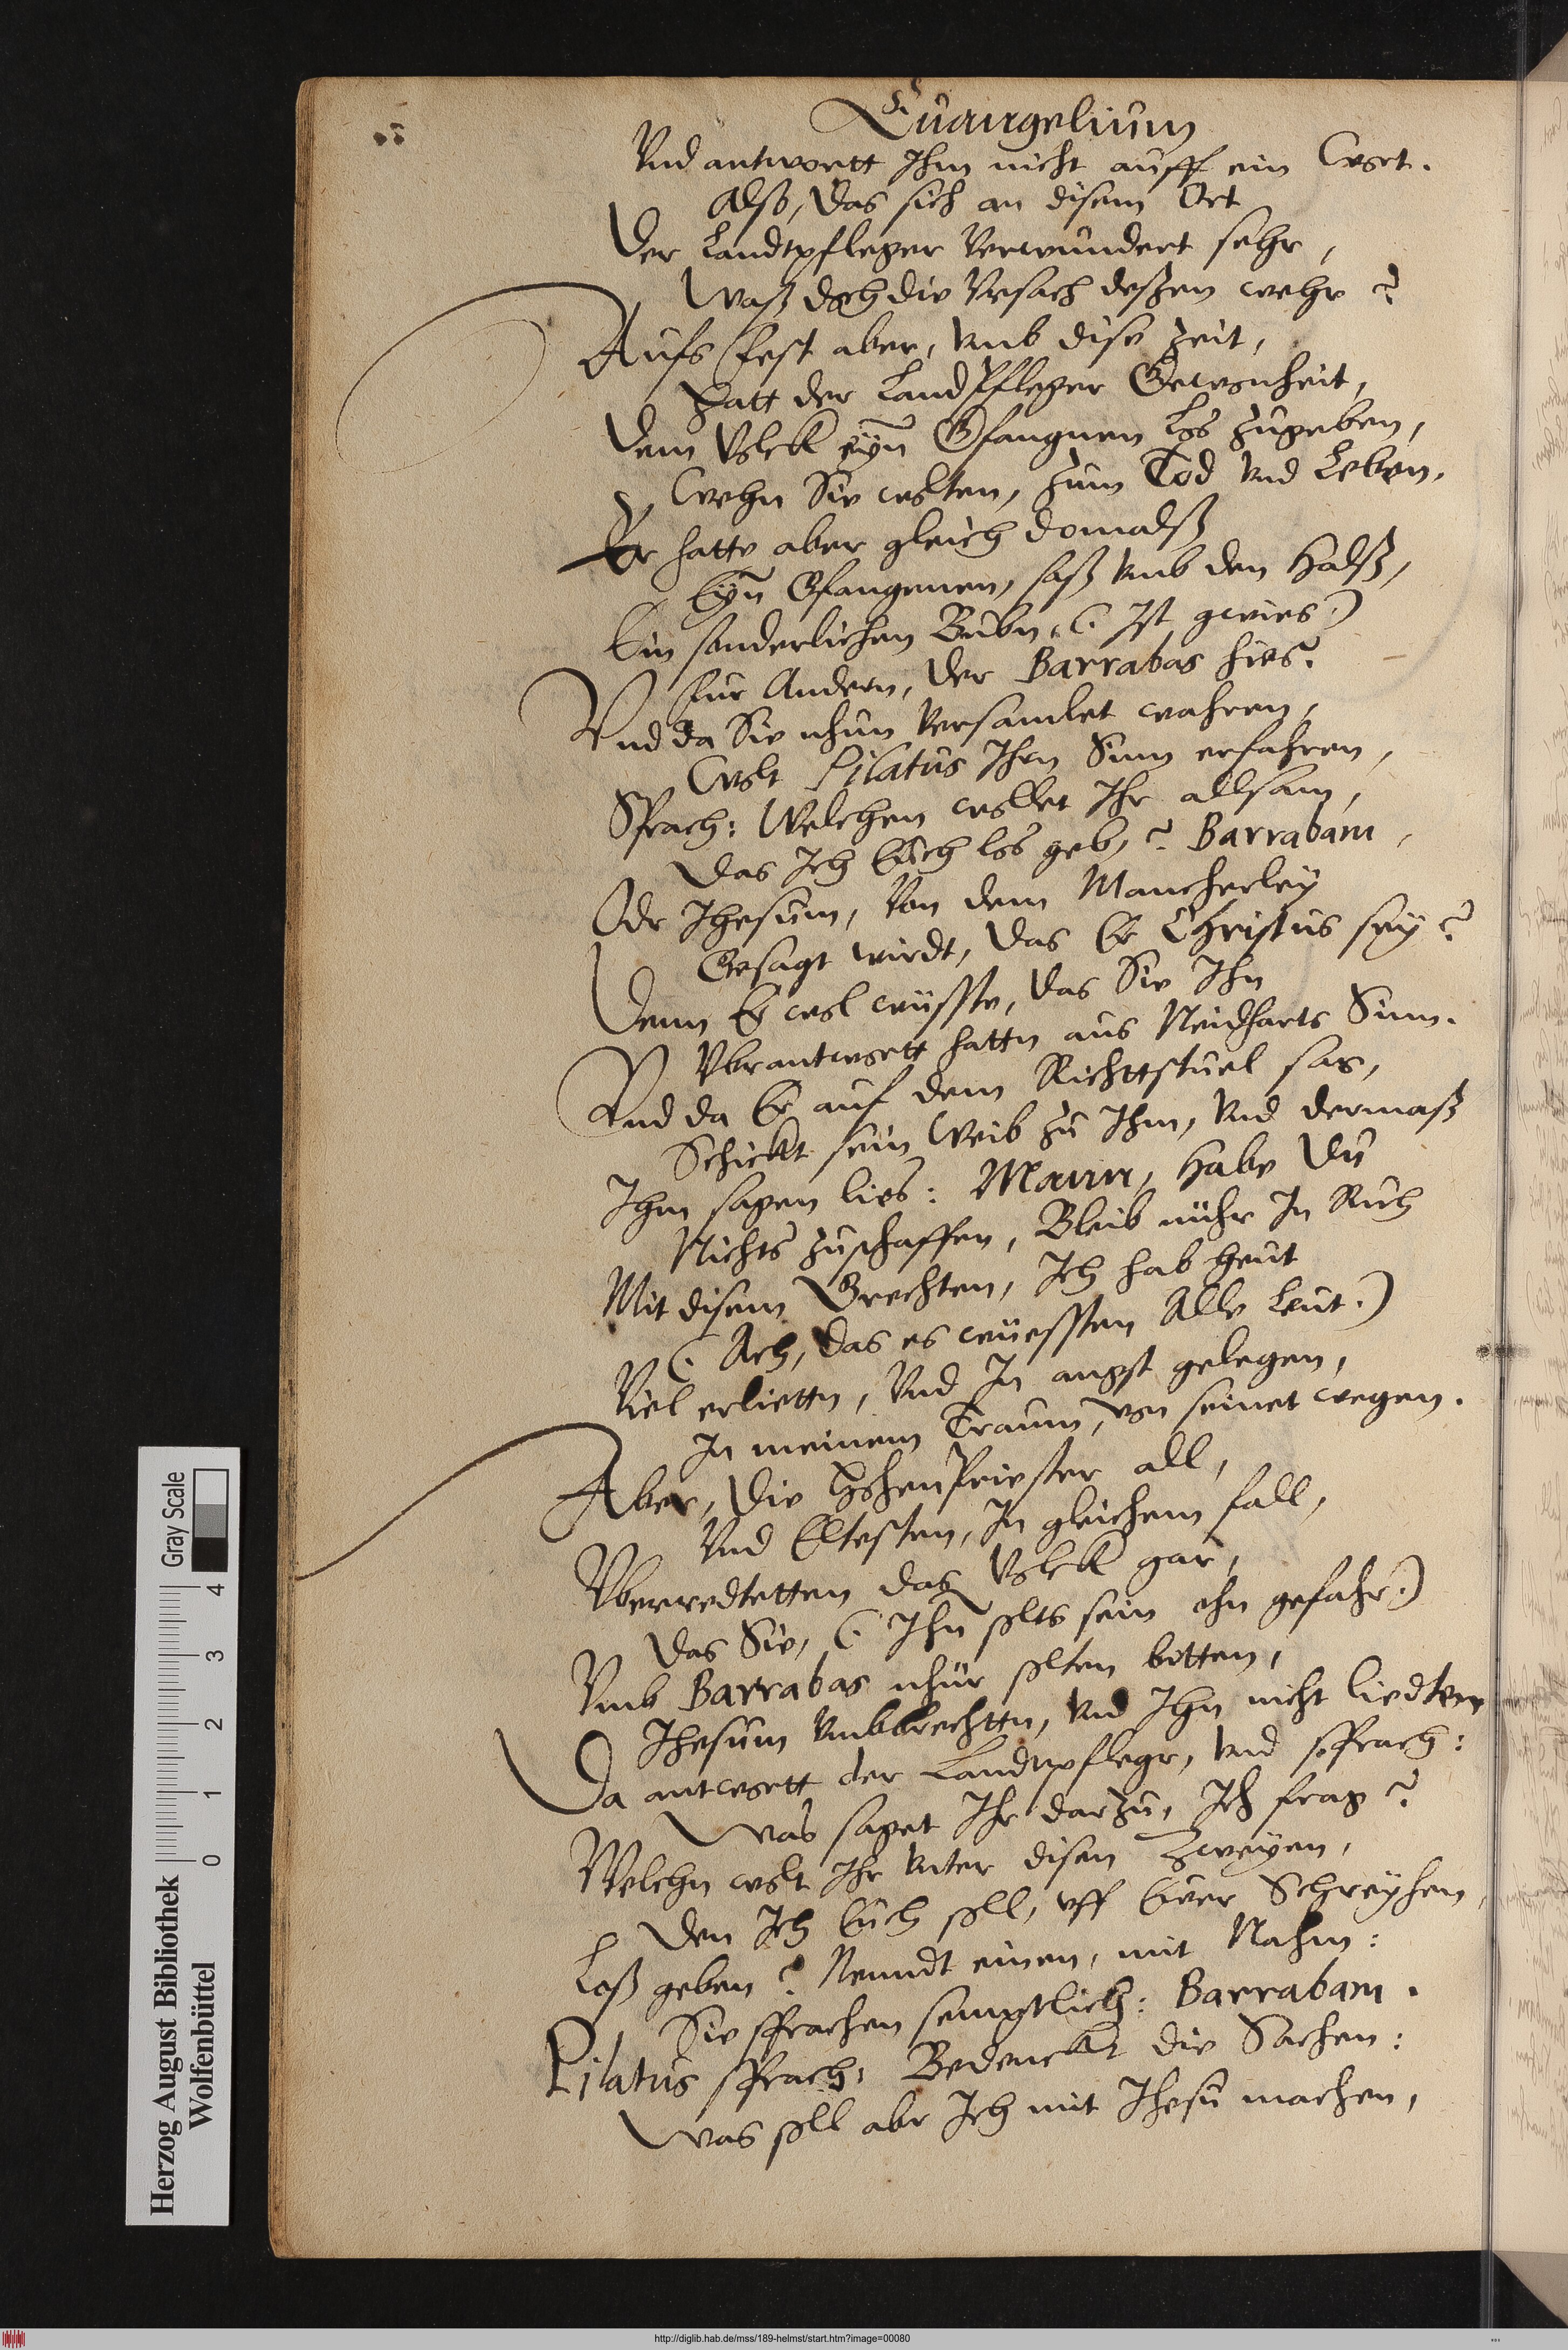 Euangelium
Vnd antwortt Ihm nicht auff ein Wort.
Also, das sich an disem Ort
Der Landtpfleger Verwundert sehr,
Waß doch die Vrsach deßen wehr?
Aufs fest aber, vmb dise Zeit,
Hatt der LandPfleger Gewonheit,
Dem Volck eyn Gfangnen Los zugeben,
Wehn Sie wolten, zum Tod vnd Leben.
Er hatte aber gleich domalß
Eyn Gfangenen, saß vmb den Halß,
Ein sonderlichen Bubn, (Ist gwies)
fur Andern, der Barrabas hies.
Vnd da Sie nhun Versamlet wahren,
Wolt Pilatus Ihrn Sinn erfahren,
Sprach: Welchen wollet Ihr allsam,
Das Ich Euch los geb,? Barrabam,
Odr Ihesum, Von dem Mancherley
Gesagt wirdt, das Er Christus sey?
Denn Er wol wüsste, das Sie Ihn
Vbrantwortt hattn aus Neidharts Sinn.
Vnd da Er auf dem Richttstuel sas,
Schickt sein Weib zu Ihm, Vnd dermaß
Ihm sagen lies: Mann, Habe Du
Nichts zuschaffen, Bleib nuhr In Ruh
Mit disem Grechten, Ich hab heut
(Ach, das es wüessten Alle Leut.)
Viel erliettn, Vnd In angst gelegen,
In meinem Traum, von seinet wegen.
Aber, die HohenPriester all,
Vnd Eltesten, In gleichem fall,
Vberredtetten das Volck gar,
Das Sie, (Ihn solts sein ohn gefahr.)
Vmb Barrabas nhur solten bitten,
Ihesum vmbbrechttn, vnd Ihn nicht liedten
Da antwortt der Landtpflegr, vnd sprach:
Was saget Ihr darzu, Ich frag?
Welchn wolt Ihr Vnter disen Zweyen,
Den Ich Euch soll, vff Euer Schreyhen,
Loß geben? Nenndt einen, mit Nahm:
Sie sprachen semptlich: Barrabam.
Pilatus sprach: Bedenckt die Sachen:
Was soll abr Ich mit Ihesu machen,
Herzog August Bibliothek
Wolfenbüttel
0 1 2 3 4
Gray Scale
http://diglib.hab.de/mss/189-helmst/start.htm?image=00080